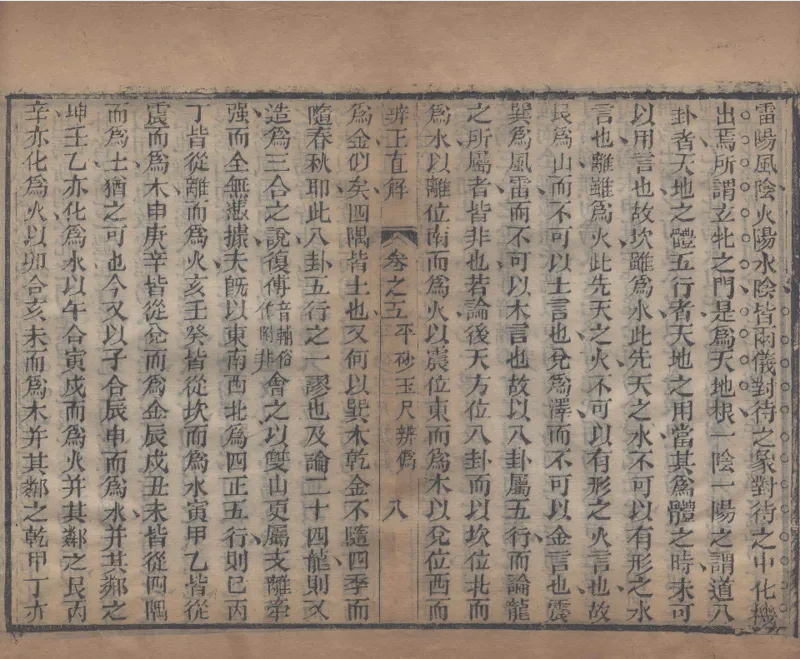 雷陽風陰火陽水陰皆兩儀對待之象對待之中化機
出焉所謂玄牝之門是爲天地根一陰一陽之謂道八
卦者天地之體五行者天地之用當其爲體之時未可
以用言也故坎雖爲水此先天之水不可以有形之水
言也離雖爲火此先天之火不可以有形之火言也故
艮爲山而不可以土言也兌爲澤而不可以金言也震
巽爲風雷而不可以木言也故以八卦屬五行而論龍
之所屬者皆非也若論後天方位八卦而以坎位北而
爲水以離位南而爲火以震位東而爲木以兌位西而
辨正直解 卷之五 平砂玉尺辨僞 八
爲金似矣四隅皆土也又何以巽木乾金不隨四季而
隨春秋耶此八卦五行之一謬也及論二十四龍則又
造爲三合之說復傅音輔俗作附非會之以雙山更屬支離牽
强而全無憑據夫旣以東南西北爲四正五行則巳丙
丁皆從離而爲火亥壬癸皆從坎而爲水寅甲乙皆從
震而爲木申庚辛皆從兌而爲金辰戌丑未皆從四隅
而爲土猶之可也今又以子合辰申而爲水并其鄰之
坤壬乙亦化爲水以午合寅戌而爲火并其鄰之艮丙
辛亦化爲火以卯合亥未而爲木并其鄰之乾甲丁亦